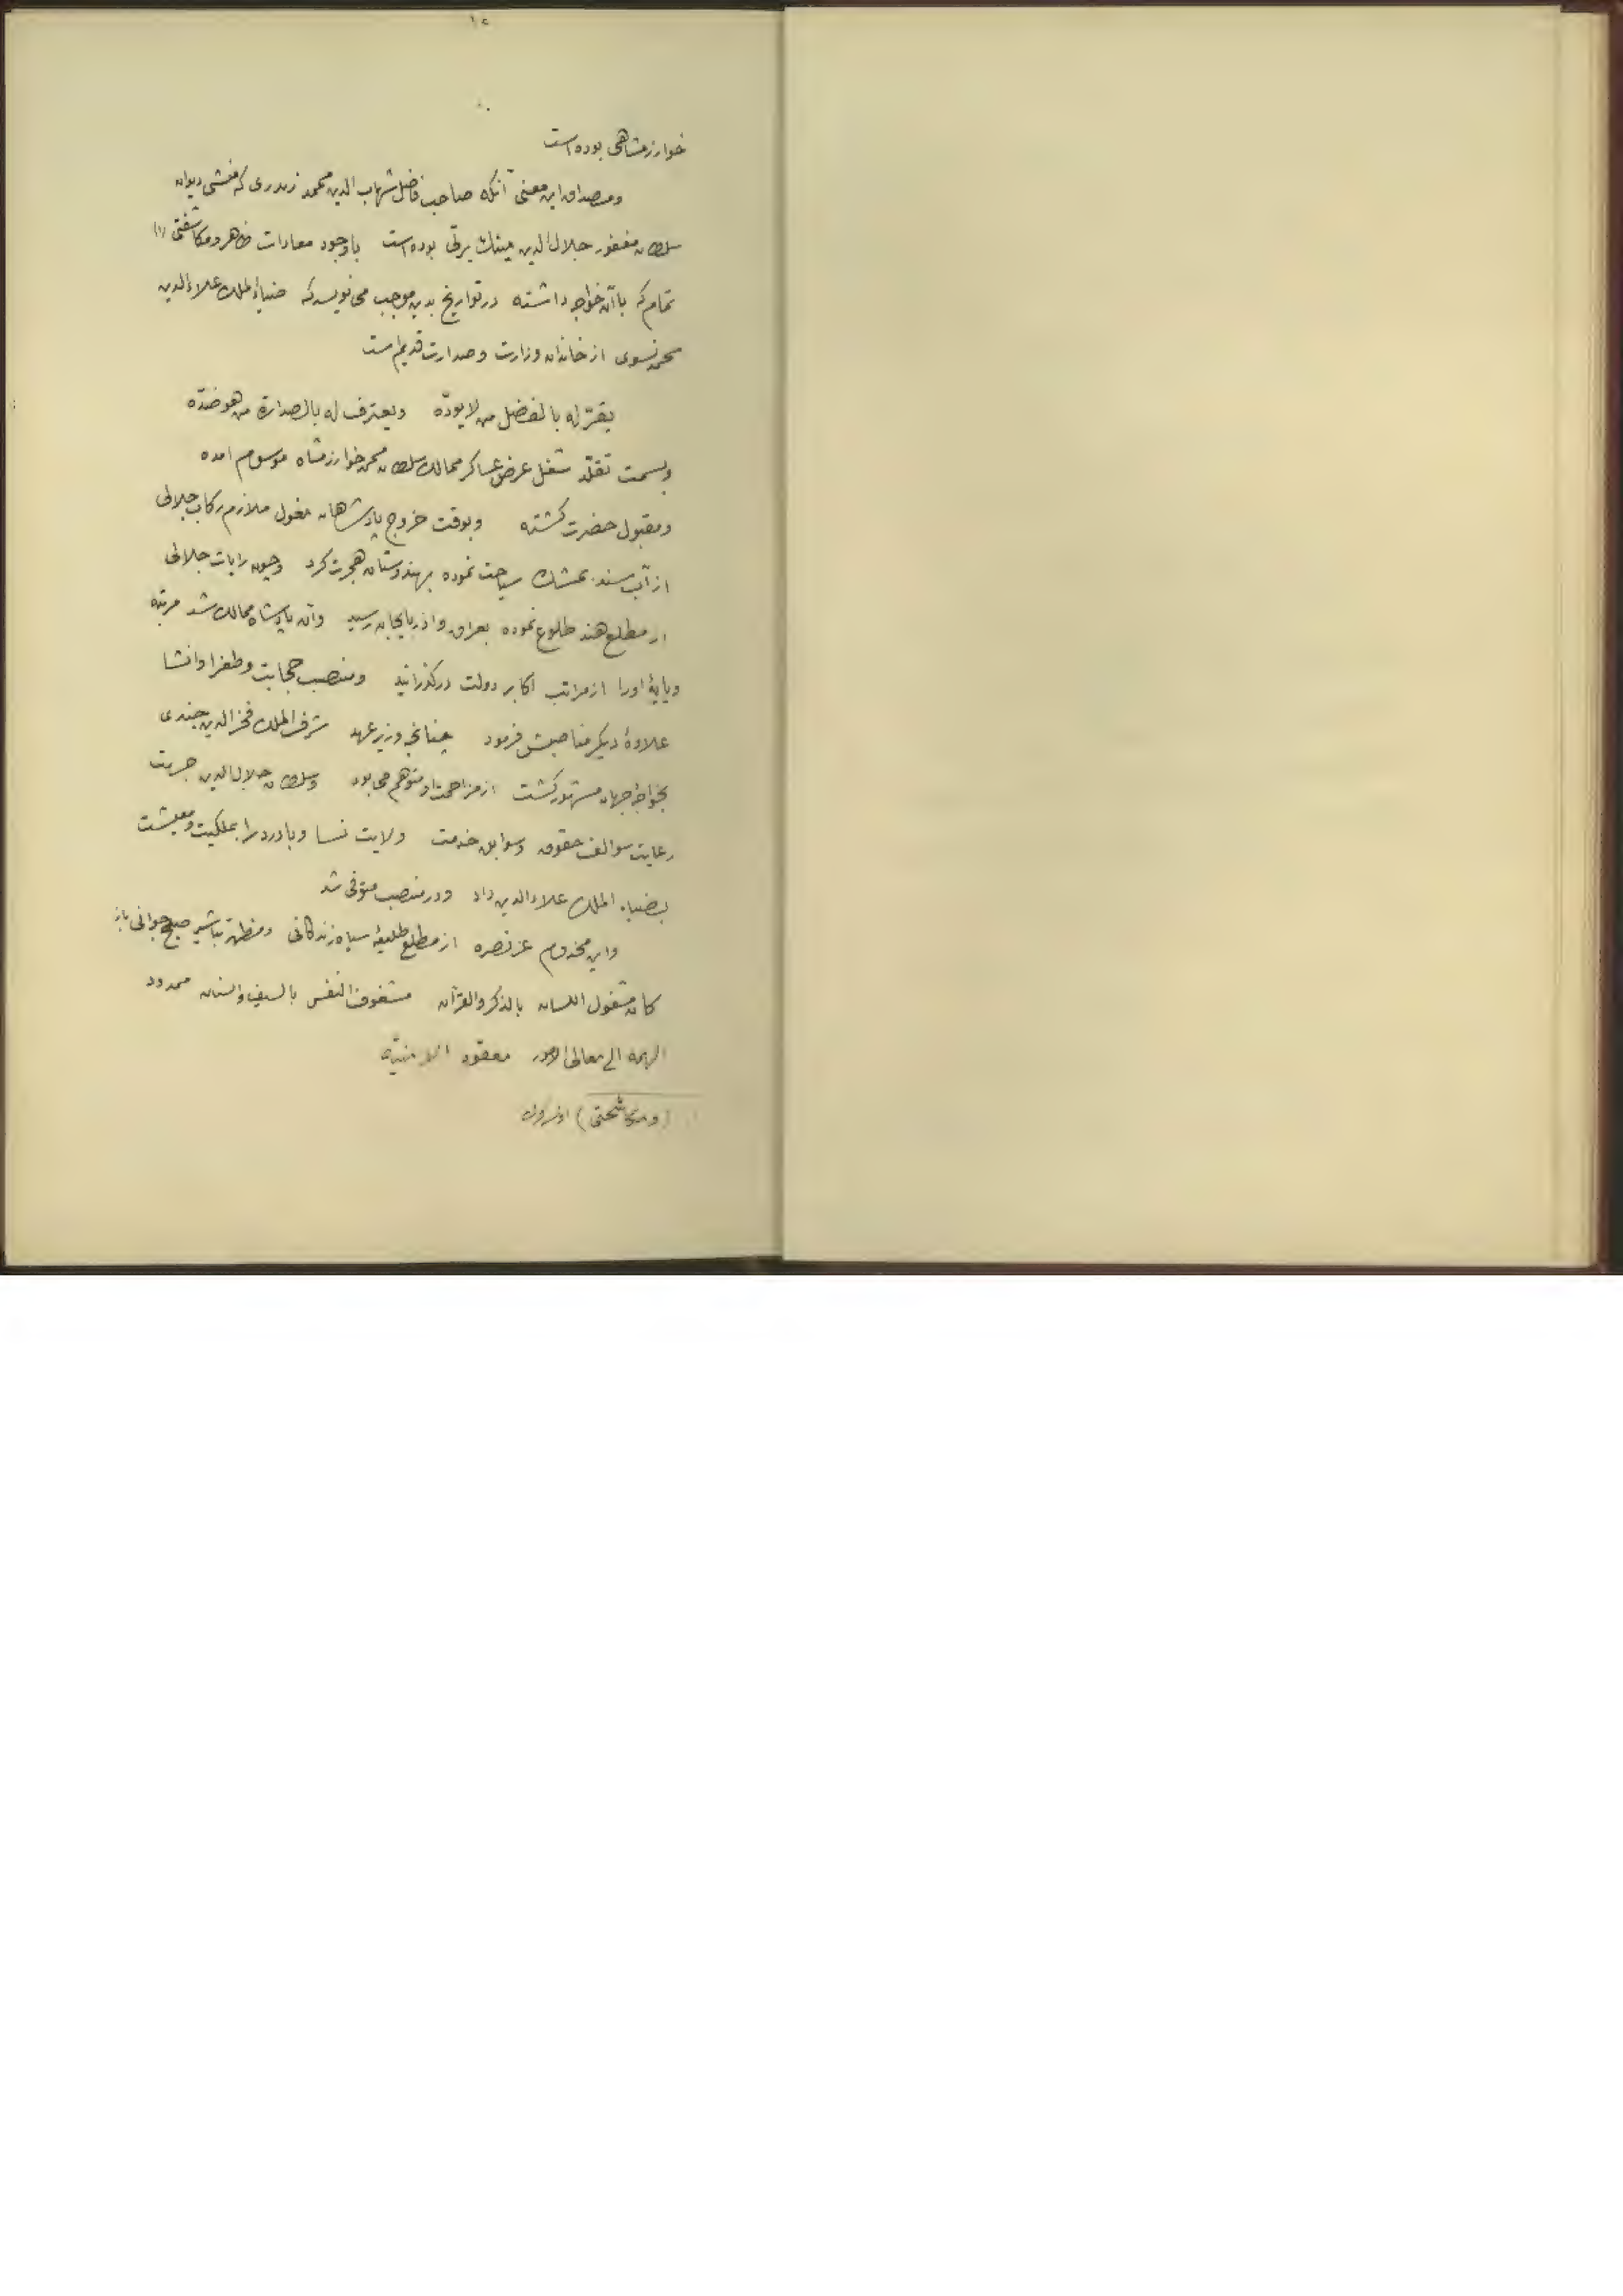 خوارزمشاهی بوده است
ومصداق این معنی آنکه صاحب فاضل شهاب الدین محمد زیدری که منشی دیوان
سلطان مغفور جلال الدین مینک برتی بوده است باوجود معادات ظاهر ومکاشفتی (۱)
تمام که باآن خواجه داشته در تواریخ بدین موجب می نویسد که ضیاء الملک علاء الدین
محمد نسوی از خاندان وزارت وصدارت قدیم است
یقرّ له بالفضل من لا یودّه ویعترف له بالصدارة من هو ضدّه
وبسمت تقلّد شغل عرض عساکر ممالک سلطان محمد خوارزمشاه موسوم امده
ومقبول حضرت کشته وبوقت خروج پادشاهان مغول ملازم رکاب جلالی
از آب سند سیاحت نموده بهندوستان هجرت کرد وچون رایات جلالی
از مطلع هند طلوع نموده بعراق واذربایجان رسید وآن پادشاه ممالک شد مرتبه
وپایهٔ اورا از مراتب اکابر دولت درکذرانید ومنصب حجابت وطغرا وانشا
علاوهٔ دیکر مناصبش فرمود چنانچه وزیر عهد شرف الملک فخر الدین جندی
بخواجهٔ جهان مشهور کشت از مزاحمت او متوهم می بود وسلطان جلال الدین جهت
رعایت سوالف حقوق وسوابق خدمت ولایت نسا وباورد را بملکیت ومعیشت
بضیاء الملک علاء الدین داد ودر منصب متوفی شد
واین مخدوم عز نصره از مطلع طلیعهٔ سپاه زندکانی ومظهر تباشیر صبح جوانی باز
کان مشغول اللسان بالذکر والقرآن مشغوف النفس بالسیف والسنان ممدود
الهمه الی معالی الامور معقود
(ومکاشحتی)